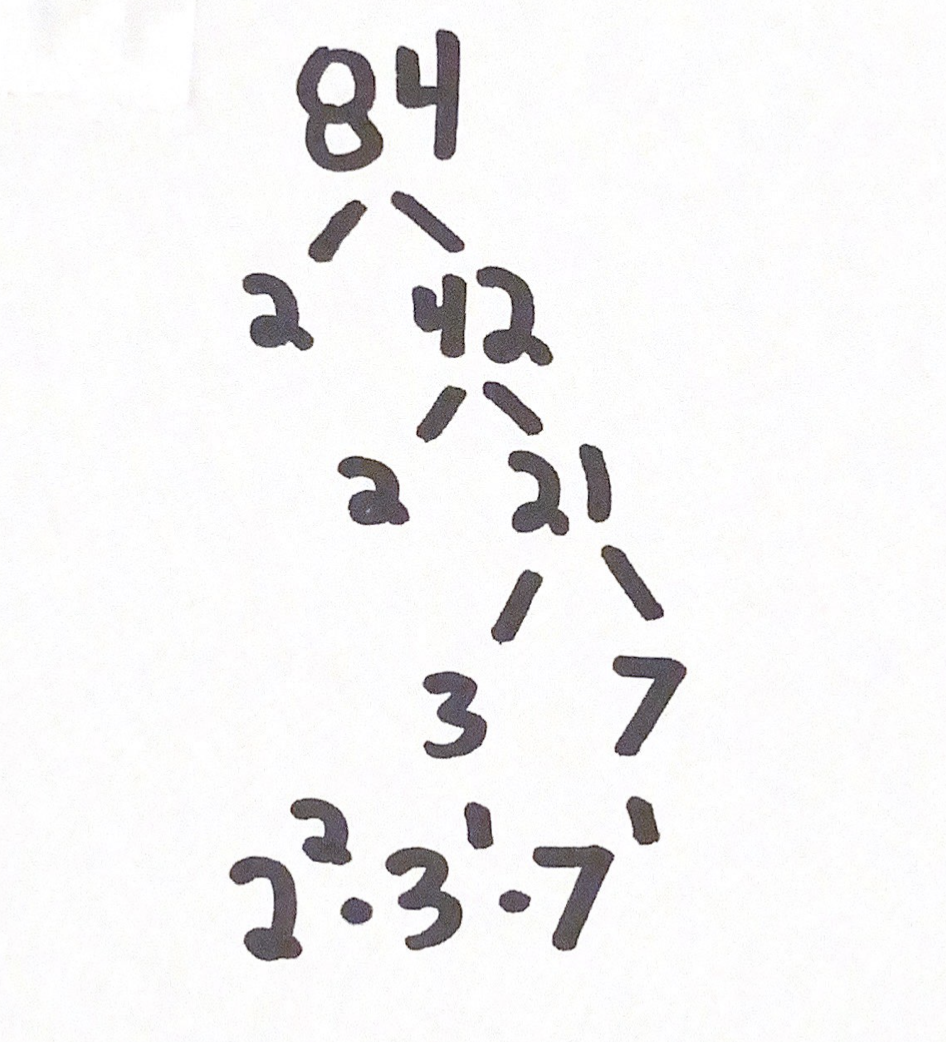 84
2 42
2 21
3 7
2² · 3¹ · 7¹